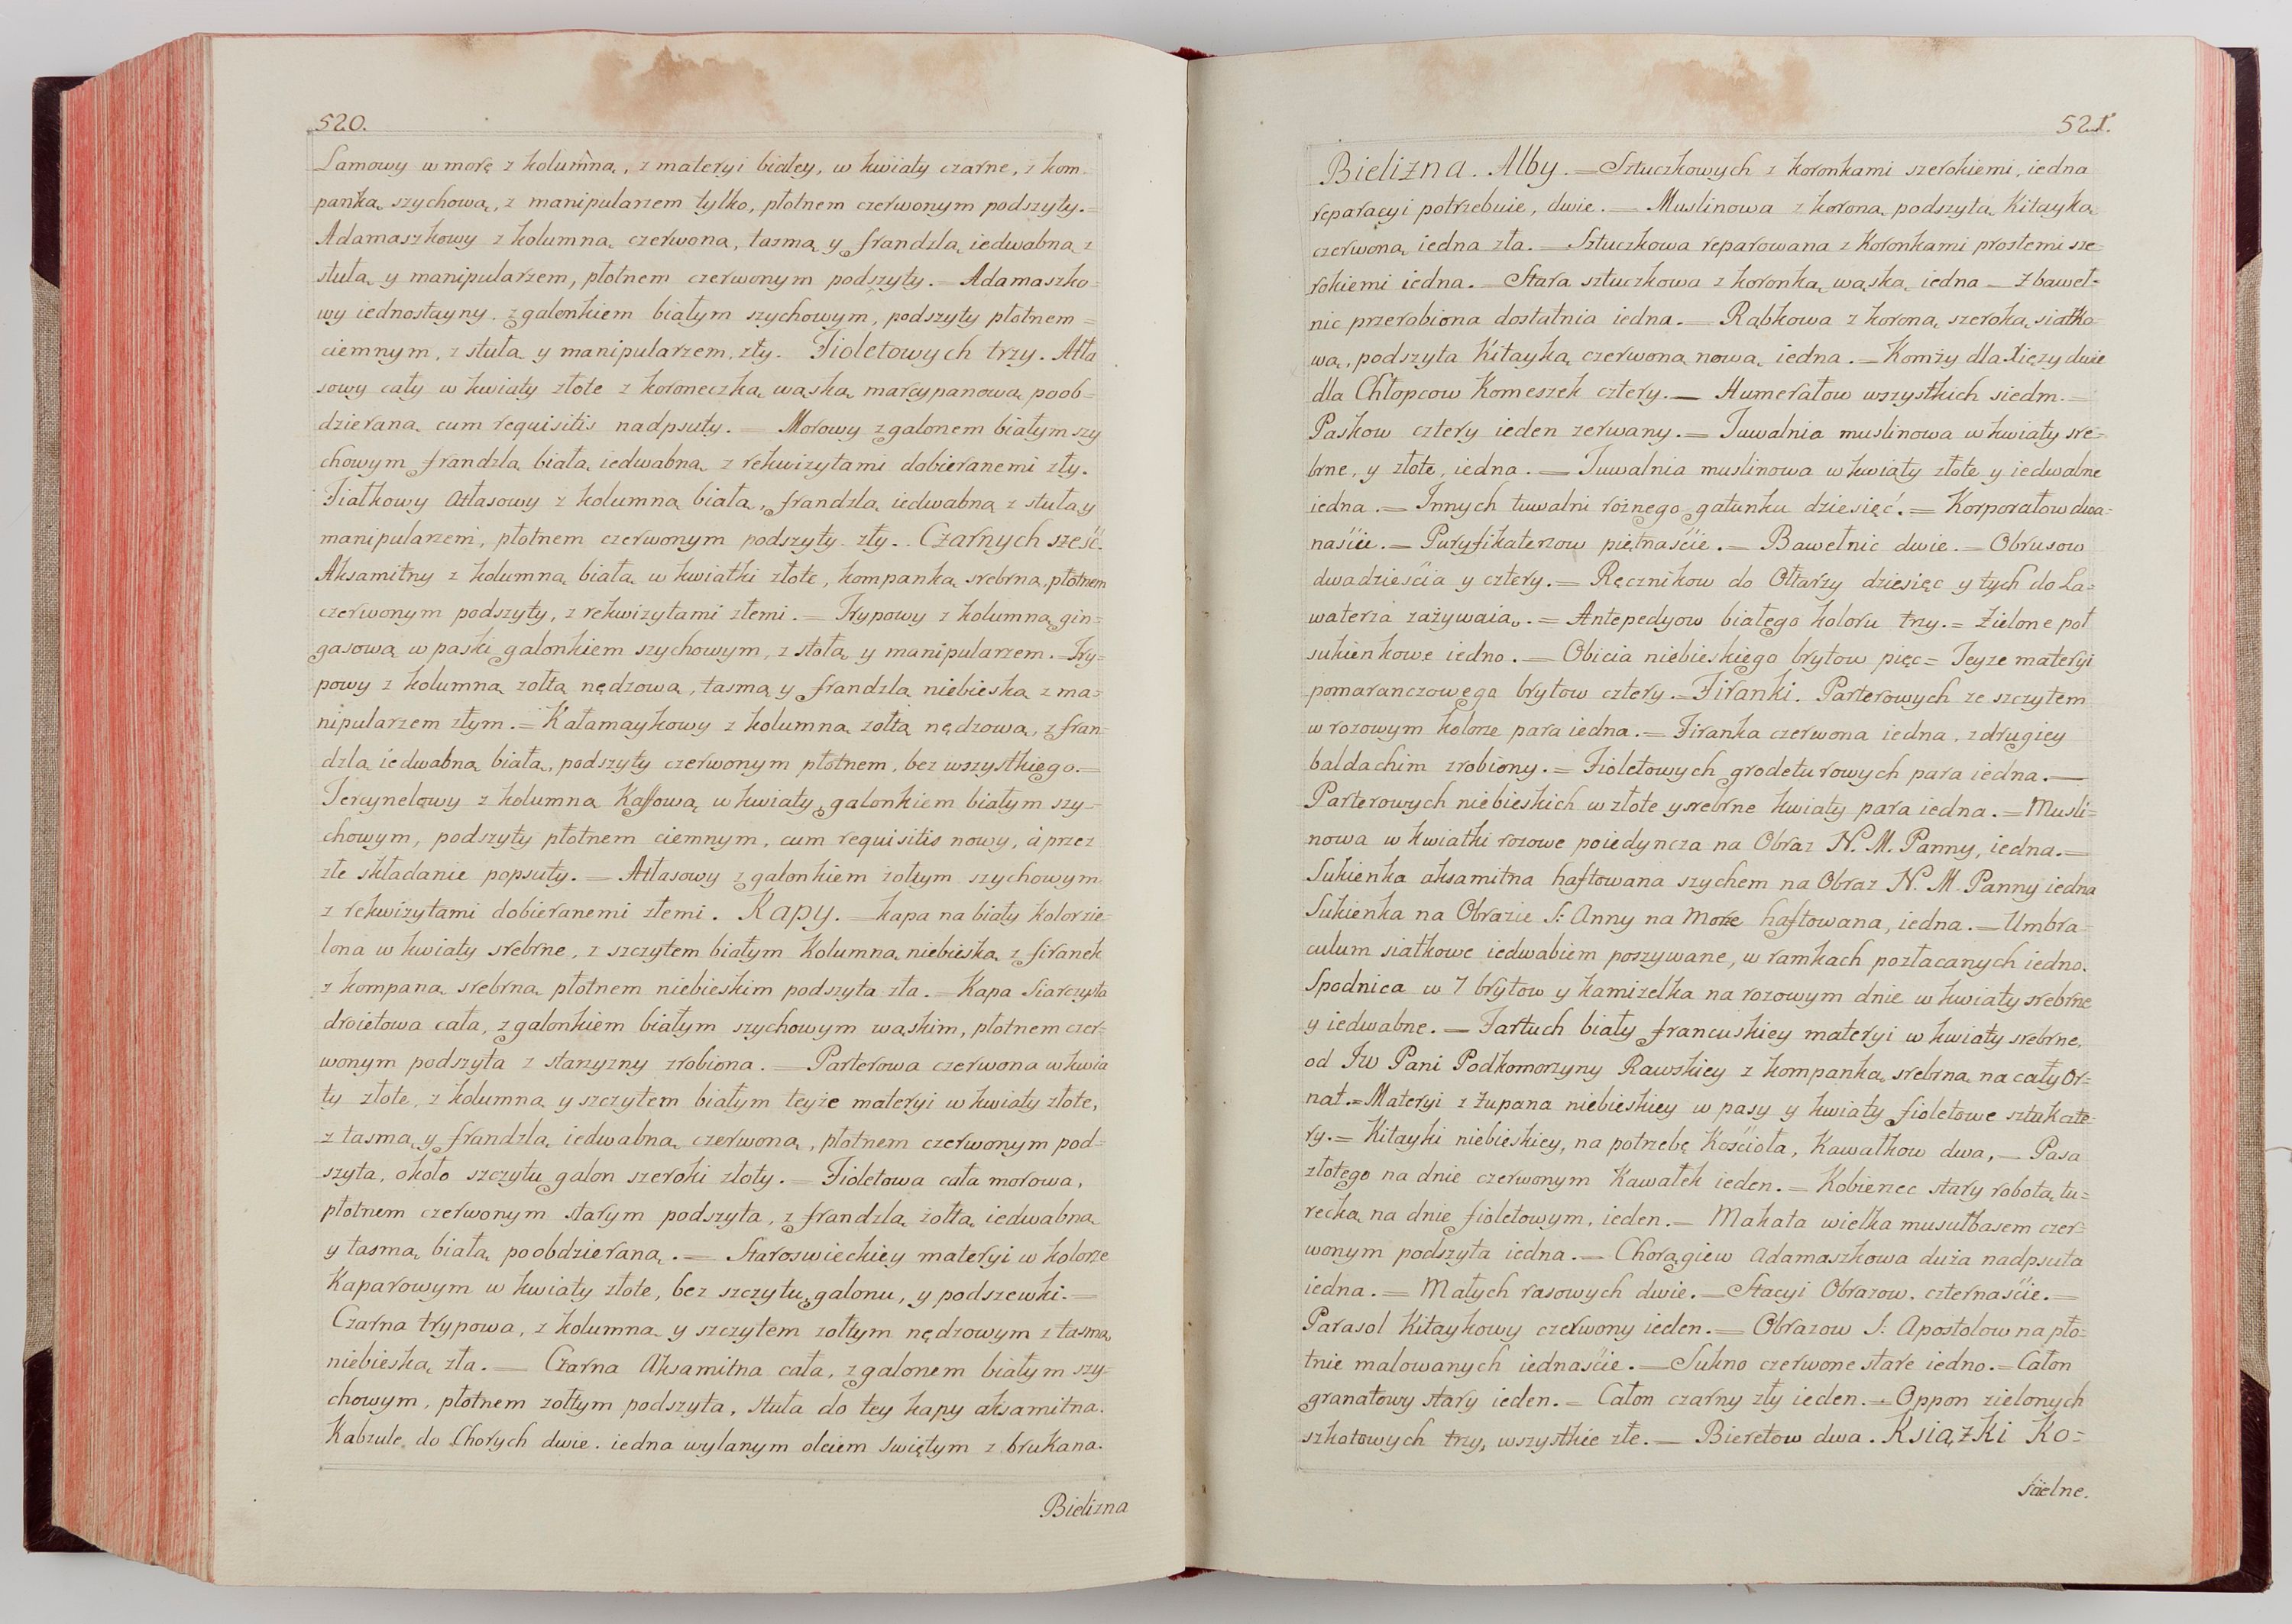 520.
Lamowy w morę z kolumną, z materyi białey, w kwiaty czarne, z kom-
panką szychową, z manipularzem tylko, płotnem czerwonym podszyty.=
Adamaszkowy z kolumną czerwoną, tasmą y frandzlą iedwabną z
stułą y manipularzem, płotnem czerwonym podszyty.—Adamaszko=
wy iednostayny z galonkiem białym szychowym, podszyty płotnem=
ciemnym, z stułą y manipularzem, zły. Fioletowych trzy. Atła
sowy cały w kwiaty złote z koroneczką wąską marcypanową poob=
dzieraną cum requisitis nadpsuty.= Morowy z galonem białym szy
chowym frandzlą białą iedwabną z rekwizytami dobieranemi zły.
Fiałkowy Atłasowy z kolumną białą, frandzlą iedwabną z stułą y
manipularzem, płotnem czerwonym podszyty zły.. Czarnych sześć.
Aksamitny z kolumną białą w kwiatki złote, kompanką srebrną, płotnem
czerwonym podszyty, z rekwizytami złemi.= Trypowy z kolumną gin=
gasową w paski galonkiem szychowym, z stołą y manipularzem.=Try-
powy z kolumną zołtą nędzową, tasmą y frandzlą niebieską z ma=
nipularzem złym.=Kałamaykowy z kolumną zołtą nędzową, z fran=
dzlą iedwabną białą, podszyty czerwonym płotnem, bez wszystkiego.=
Tercynelowy z kolumną Kaffową w kwiaty, galonkiem białym szy=
chowym, podszyty płotnem ciemnym, cum requisitis nowy, á przez
złe składanie popsuty.= Atłasowy z galonkiem żołtym szychowym
z rekwizytami dobieranemi złemi. Kapy.=kapa na biały kolor zie-
lona w kwiaty srebrne, z szczytem białym kolumną niebieską z firanek
z kompaną srebrną płotnem niebieskim podszyta zła.= Kapa Siarczysto
droietowa cała, z galonkiem białym szychowym wąskim, płotnem czer-
wonym podszyta z starzyzny zrobiona.= Parterowa czerwona w kwia
ty złote, z kolumną y szczytem białym teyże materyi w kwiaty złote,
z tasmą y frandzlą iedwabną czerwoną, płotnem czerwonym pod=
szyta, około szczytu galon szeroki złoty.= Fioletowa cała morowa,
płotnem czerwonym starym podszyta, z frandzlą żołtą iedwabną
y tasmą białą poobdzieraną.= Staroswieckiey materyi w kolorze
Kaparowym w kwiaty złote, bez szczytu, galonu, y podszewki.=
Czarna trypowa, z kolumną y szczytem zołtym nędzowym z tasmą
niebieską zła.= Czarna Aksamitna cała, z galonem białym szy-
chowym, płotnem zołtym podszyta, stuła do tey kapy aksamitna.
Kabzule do Chorych dwie. iedna wylanym oleiem świętym z brukana.
Bielizna
521.
Bielizna. Alby.=Sztuczkowych z koronkami szerokiemi, iedna
reparacyi potrzebuie, dwie.= Muslinowa z koroną podszyta Kitayką
czerwoną iedna zła.= Sztuczkowa reparowana z Koronkami prostemi sze=
rokiemi iedna.= Stara sztuczkowa z koronką wąską iedna= Z baweł-
nic przerobiona dostatnia iedna.= Rąbkowa z koroną szeroką siatko=
wą, podszyta Kitayką czerwoną nową iedna.=Komży dla Xięży dwie
dla Chłopcow Komeszek cztery.= Humerałow wszystkich siedm.=
Paskow cztery ieden zerwany.= Tuwalnia muslinowa w kwiaty sre=
brne, y złote, iedna.= Tuwalnia muslinowa w kwiaty złote y iedwabne
iedna.= Innych tuwalni rożnego gatunku dziesięć.= Korporałow dwa=
naście.= Puryfikaterzow piętnaście.= Bawełnic dwie.= Obrusow
dwadzieścia y cztery.= Ręcznikow do Ołtarzy dziesięc y tych do La=
waterza zażywaią.= Antepedyow białego koloru trzy.= Zielone poł
sukienkowe iedno.= Obicia niebieskiego brytow pięc= Teyze materyi
pomaranczowego brytow cztery.=Firanki. Parterowych ze szczytem
w rozowym kolorze para iedna.= Firanka czerwona iedna, z drugiey
baldachim zrobiony.= Fioletowych grodeturowych para iedna.=
Parterowych niebieskich w złote y srebrne kwiaty para iedna.=Musli=
nowa w kwiatki rozowe poiedyncza na Obraz N. M. Panny, iedna.=
Sukienka aksamitna haftowana szychem na Obraz N. M. Panny iedna
Sukienka na Obrazie S: Anny na Morze haftowana, iedna.=Umbra=
culum siatkowe iedwabiem poszywane, w ramkach pozłacanych iedno.
Spodnica w 7 brytow y kamizelka na rozowym dnie w kwiaty srebrne
y iedwabne.= Fartuch biały francuskiey materyi w kwiaty srebrne,
od Jw Pani Podkomorzyny Rawskiey z kompanką srebrną na cały Or=
nat.=Materyi z żupana niebieskiey w pasy y kwiaty fioletowe sztuk czte=
ry.= Kitayki niebieskiey, na potrzebę Kościoła, Kawałkow dwa,= Pasa
złotego na dnie czerwonym Kawałek ieden.= Kobierzec stary robotą tu=
recką na dnie fioletowym, ieden.= Makata wielka musułbasem czer=
wonym podszyta iedna.= Chorągiew adamaszkowa duża nadpsuta
iedna.= Małych rasowych dwie.=Stacyi Obrazow, czternaście.=
Parasol Kitaykowy czerwony ieden.= Obrazow S: Apostołow na pło=
tnie malowanych iednaście.=Sukno czerwone stare iedno.=Całon
granatowy stary ieden.= Całon czarny zły ieden.=Oppon zielonych
szkotowych trzy, wszystkie złe.= Bieretow dwa. Książki Ko=
ścielne.